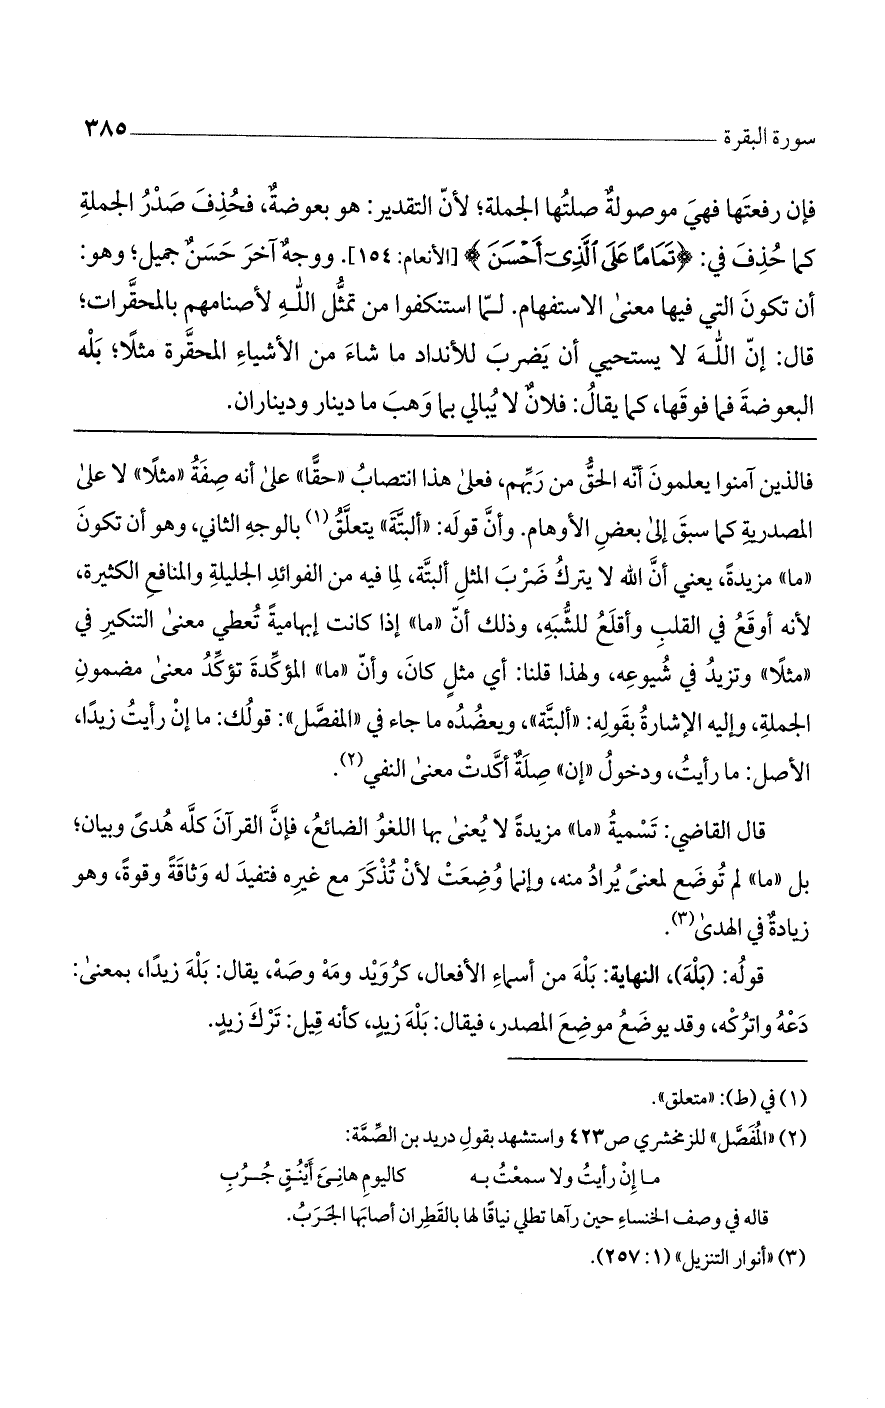 سورة البقرة ٣٨٥
فإن رفعتَها فهيَ موصولةٌ صلتُها الجملة؛ لأنّ التقدير: هو بعوضةٌ، فحُذِفَ صَدْرُ الجملةِ
كما حُذِفَ في: ﴿تَمَامًا عَلَى ٱلَّذِىٓ أَحْسَنَ﴾ [الأنعام: ١٥٤]. ووجهٌ آخرَ حَسَنٌ جميل؛ وهو:
أن تكونَ التي فيها معنىٰ الاستفهام. لـمّا استنكفوا من تمثُّل اللهِ لأصنامهم بالمحقَّرات؛
قال: إنّ اللهَ لا يستحيي أن يَضربَ للأنداد ما شاءَ من الأشياءِ المحقَّرة مثلًا؛ بَلْه
البعوضةَ فما فوقَها، كما يقالُ: فلانٌ لا يُبالي بما وَهبَ ما دينار وديناران.
فالذين آمنوا يعلمونَ أنّه الحقُّ من رَبِّهم، فعلىٰ هذا انتصابُ «حقًّا» علىٰ أنه صِفَةُ «مثلًا» لا علىٰ
المصدريةِ كما سبقَ إلىٰ بعضِ الأوهام. وأنَّ قولَه: «ألبتَّةَ» يتعلَّقُ(١) بالوجهِ الثاني، وهو أن تكونَ
«ما» مزيدةً، يعني أنَّ الله لا يتركُ ضَرْبَ المثلِ ألبتَّة، لِما فيه من الفوائدِ الجليلةِ والمنافعِ الكثيرة،
لأنه أوقَعُ في القلبِ وأقلَعُ للشُّبَهِ، وذلك أنّ «ما» إذا كانت إبهاميةً تُعطي معنىٰ التنكيرِ في
«مثلًا» وتزيدُ في شُيوعِه، ولهذا قلنا: أي مثلٍ كانَ، وأنّ «ما» المؤكِّدةَ تؤكِّدُ معنىٰ مضمونِ
الجملةِ، وإليه الإشارةُ بقَولِه: «ألبتَّة»، ويعضُدُه ما جاء في «المفصَّل»: قولُك: ما إنْ رأيتُ زيدًا،
الأصل: ما رأيتُ، ودخولُ «إن» صِلَةٌ أكَّدتْ معنىٰ النفي(٢).
قال القاضي: تَسْميةُ «ما» مزيدةً لا يُعنىٰ بها اللغوُ الضائعُ، فإنَّ القرآنَ كلَّه هُدىً وبيان؛
بل «ما» لم تُوضَع لمعنىً يُرادُ منه، وإنما وُضِعَتْ لأنْ تُذْكَرَ مع غيرِه فتفيدَ له وَثاقَةً وقوةً، وهو
زيادةٌ في الهدىٰ(٣).
قولُه: (بَلْهَ)، النهاية: بَلْهَ من أسماءِ الأفعال، كرُوَيْد ومَهْ وصَهْ، يقال: بَلْهَ زيدًا، بمعنىٰ:
دَعْهُ واتركْه، وقد يوضَعُ موضِعَ المصدر، فيقال: بَلْهَ زيدٍ، كأنه قِيل: تَرْكَ زيدٍ.
(١) في (ط): «متعلق».
(٢) «المُفَصَّل» للزمخشري ص٤٢٣ واستشهد بقولِ دريد بن الصِّمَّة:
ما إنْ رأيتُ ولا سمعْتُ به كاليومِ هانِئَ أَيْنُقٍ جُرْبِ
قاله في وصف الخنساءِ حين رآها تطلي نياقًا لها بالقَطِران أصابَها الجَرَبُ.
(٣) «أنوار التنزيل» (١: ٢٥٧).